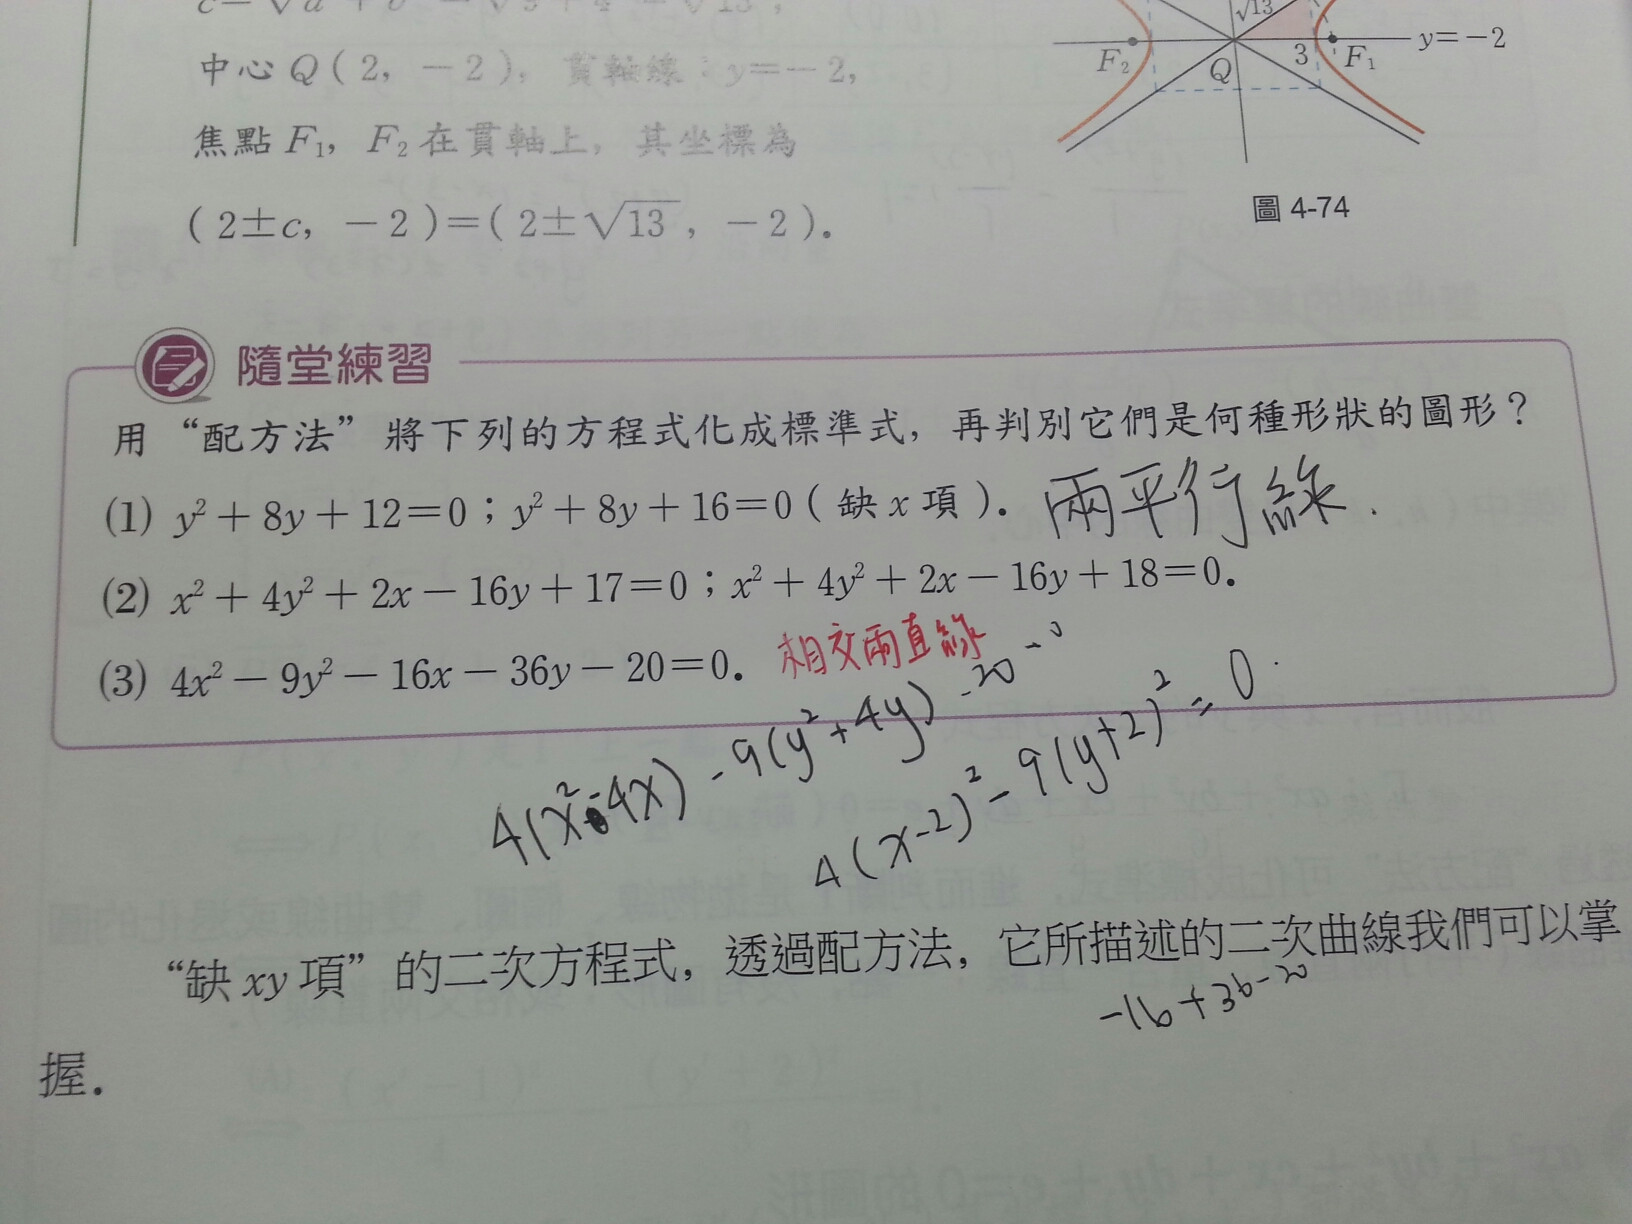 中心 Q ( 2, －2 )，貫軸線：y＝－2,
焦點 F₁, F₂ 在貫軸上，其坐標為
( 2±c, －2 )＝( 2±√13, －2 ).
√13
F₂
Q
3
F₁
y＝－2
圖 4-74
隨堂練習
用“配方法”將下列的方程式化成標準式，再判別它們是何種形狀的圖形？
(1) y²＋8y＋12＝0；y²＋8y＋16＝0 ( 缺 x 項 ). 兩平行線.
(2) x²＋4y²＋2x－16y＋17＝0；x²＋4y²＋2x－16y＋18＝0.
(3) 4x²－9y²－16x－36y－20＝0. 相交兩直線
4(x²-4x) - 9(y²+4y) -20
4(x-2)² - 9(y+2)² = 0.
“缺 xy 項”的二次方程式，透過配方法，它所描述的二次曲線我們可以掌
-16+36-20
握.